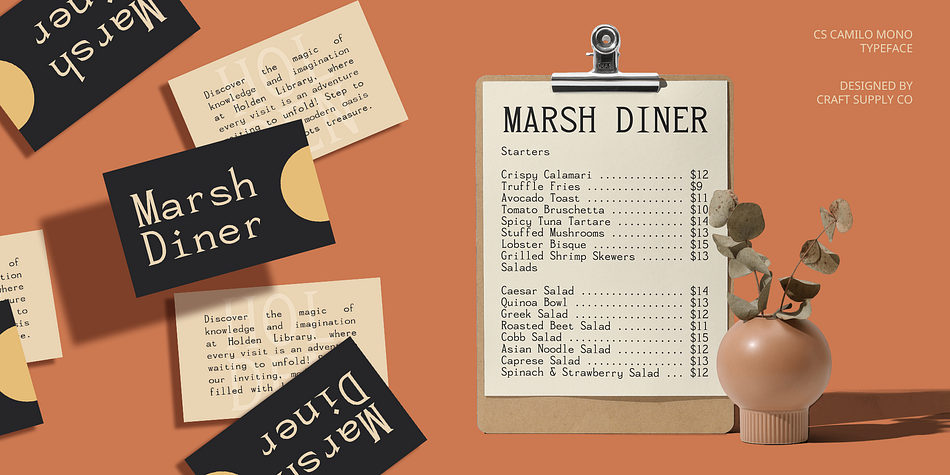 Marsh
Diner
Discover the magic of
knowledge and imagination
at Holden Library, where
every visit is an adventure
waiting to unfold! Step to
modern oasis
treasure.
HOL
EN
Marsh
Diner
of
where
ture
to
sis
e.
HOL
Discover the magic of
knowledge and imagination
at Holden Library, where
every visit is an adventure
waiting to unfold!
our inviting,
filled with
Marsh
Diner
MARSH DINER
Starters
Crispy Calamari ............... $12
Truffle Fries ................. $9
Avocado Toast ................. $11
Tomato Bruschetta ............. $10
Spicy Tuna Tartare ............ $14
Stuffed Mushrooms ............. $13
Lobster Bisque ................ $15
Grilled Shrimp Skewers ........ $13
Salads
Caesar Salad .................. $14
Quinoa Bowl ................... $13
Greek Salad ................... $12
Roasted Beet Salad ............ $11
Cobb Salad .................... $15
Asian Noodle Salad ............ $12
Caprese Salad ................. $13
Spinach & Strawberry Salad ... $12
CS CAMILO MONO
TYPEFACE
DESIGNED BY
CRAFT SUPPLY CO